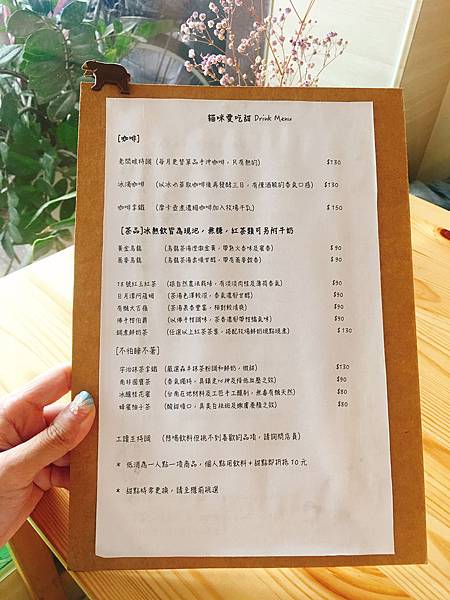 貓咪愛吃甜 Drink Menu
[咖啡]
老闆娘特調 (每月更替單品手沖咖啡，只有熱的) $130
冰滴咖啡 (以冰水萃取咖啡後再發酵三日，有種酒釀的香氣口感) $130
咖啡拿鐵 (摩卡壺煮濃縮咖啡加入牧場牛乳) $150
[茶品]冰熱飲皆為現泡，無糖，紅茶類可另附牛奶
黃金烏龍 (烏龍茶湯澄澈金黃，帶熟火香味及蜜香) $90
蕎麥烏龍 (烏龍茶湯柔順甘醇，帶有蕎麥穀香) $90
18號紅玉紅茶 (採自然農法栽種，有淡淡肉桂及薄荷香氣) $90
日月潭阿薩姆 (茶湯色澤較深，香氣濃郁甘醇) $90
有機大吉嶺 (茶湯果香豐富，相對較清爽) $90
佛手柑伯爵 (以佛手柑調味，茶香濃郁帶柑橘氣味) $90
鍋煮鮮奶茶 (任選以上紅茶茶葉，搭配牧場鮮奶現點現煮) $130
[不怕睡不著]
宇治抹茶拿鐵 (嚴選森半抹茶粉調和鮮奶，微甜) $130
南非國寶茶 (香氣獨特，具鎮定心神及降低血壓之效) $90
冰釀桂花蜜 (台南在地材料及工匠手工釀制，無毒有機天然) $80
蜂蜜柚子茶 (酸甜順口，具美白祛斑及嫩膚養顏之效) $80
工讀生特調 (想喝飲料但挑不到喜歡的品項，請詢問店員)
* 低消為一人點一項商品，個人點用飲料+甜點即折抵10元
* 甜點時常更換，請至櫃前挑選